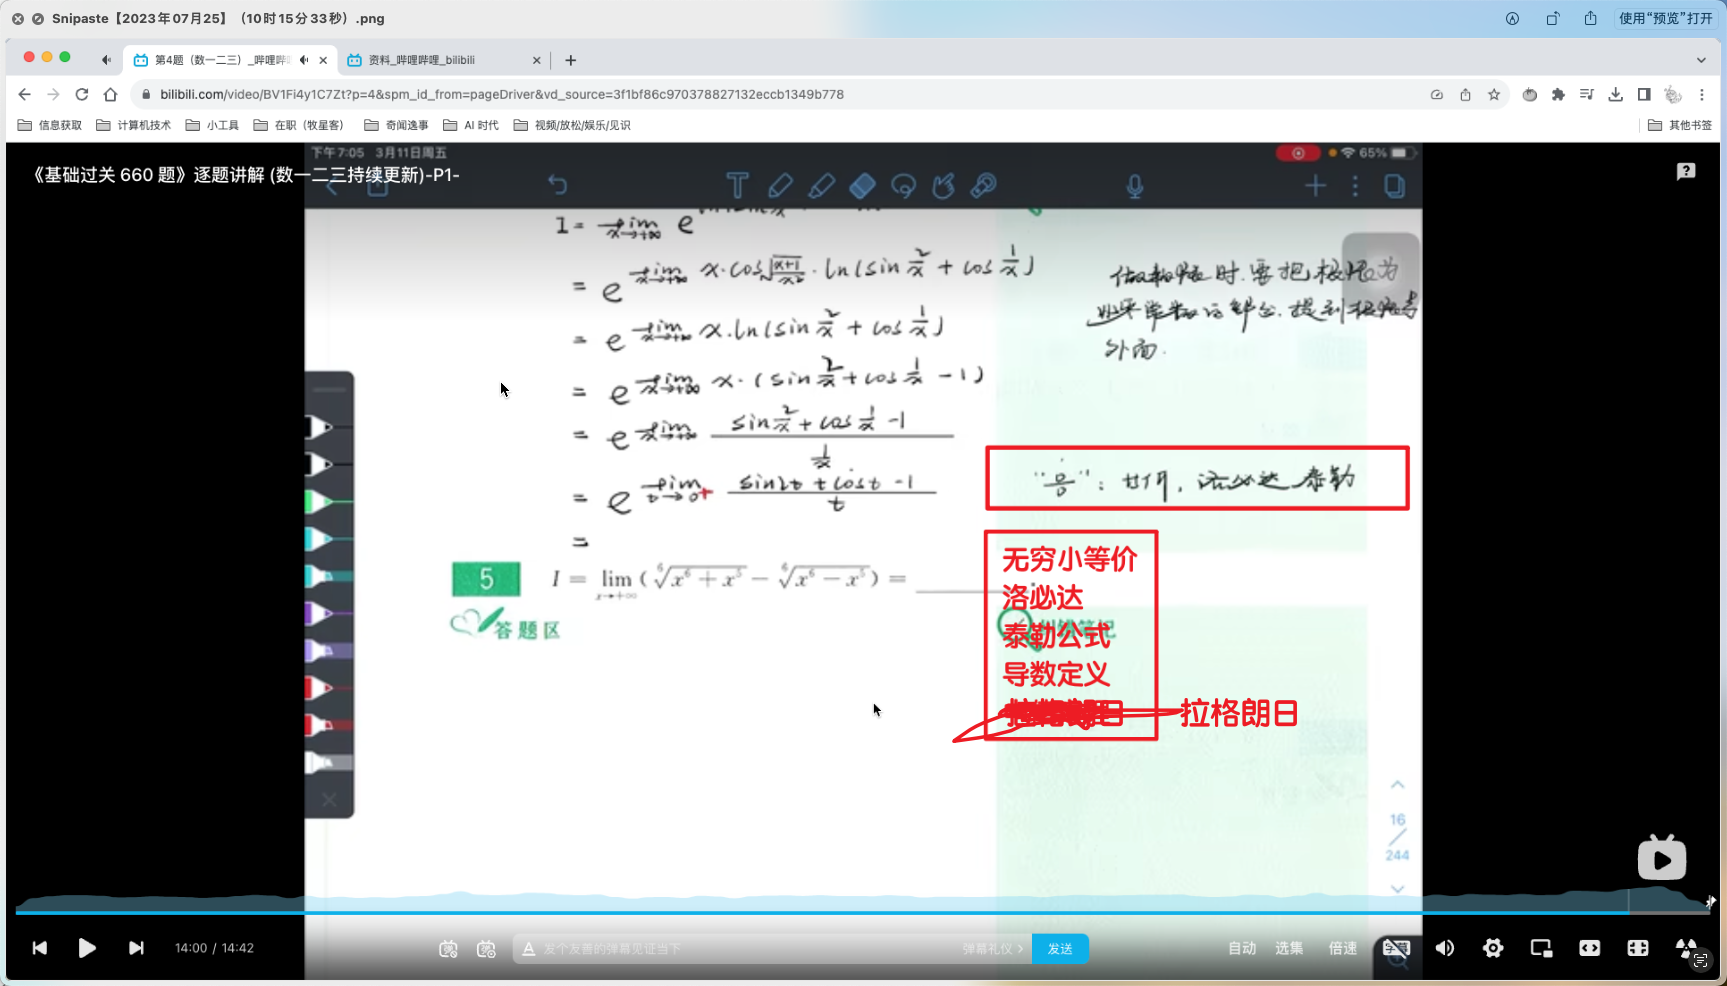 Snipaste【2023年07月25】（10时15分33秒）.png
使用“预览”打开
第4题（数一二三）_哔哩哔哩
资料_哔哩哔哩_bilibili
bilibili.com/video/BV1Fi4y1C7Zt?p=4&spm_id_from=pageDriver&vd_source=3f1bf86c970378827132eccb1349b778
信息获取 计算机技术 小工具 在职（牧星客） 奇闻逸事 AI 时代 视频/放松/娱乐/见识 其他书签
下午7:05 3月11日周五
65%
《基础过关 660 题》逐题讲解 (数一二三持续更新)-P1-
I = lim x→+∞ e
= e lim x→+∞ x·cos√(x+1)/x² · ln(sin 2/x + cos 1/x)
= e lim x→+∞ x·ln(sin 2/x + cos 1/x)
= e lim x→+∞ x·(sin 2/x + cos 1/x - 1)
= e lim x→+∞ (sin 2/x + cos 1/x - 1) / (1/x)
= e lim t→0+ (sin2t + cost - 1) / t
=
做极限时,要把极限为
非零常数的部分,提到极限号
外面.
“0/0”: 等价, 洛必达 泰勒
无穷小等价
洛必达
泰勒公式
导数定义
拉格朗日
5 I = lim x→+∞ (⁶√(x⁶ + x⁵) − ⁶√(x⁶ − x⁵)) =
答题区
纠错笔记
16
244
14:00 / 14:42
发个友善的弹幕见证当下
弹幕礼仪 >
发送
自动 选集 倍速
字幕